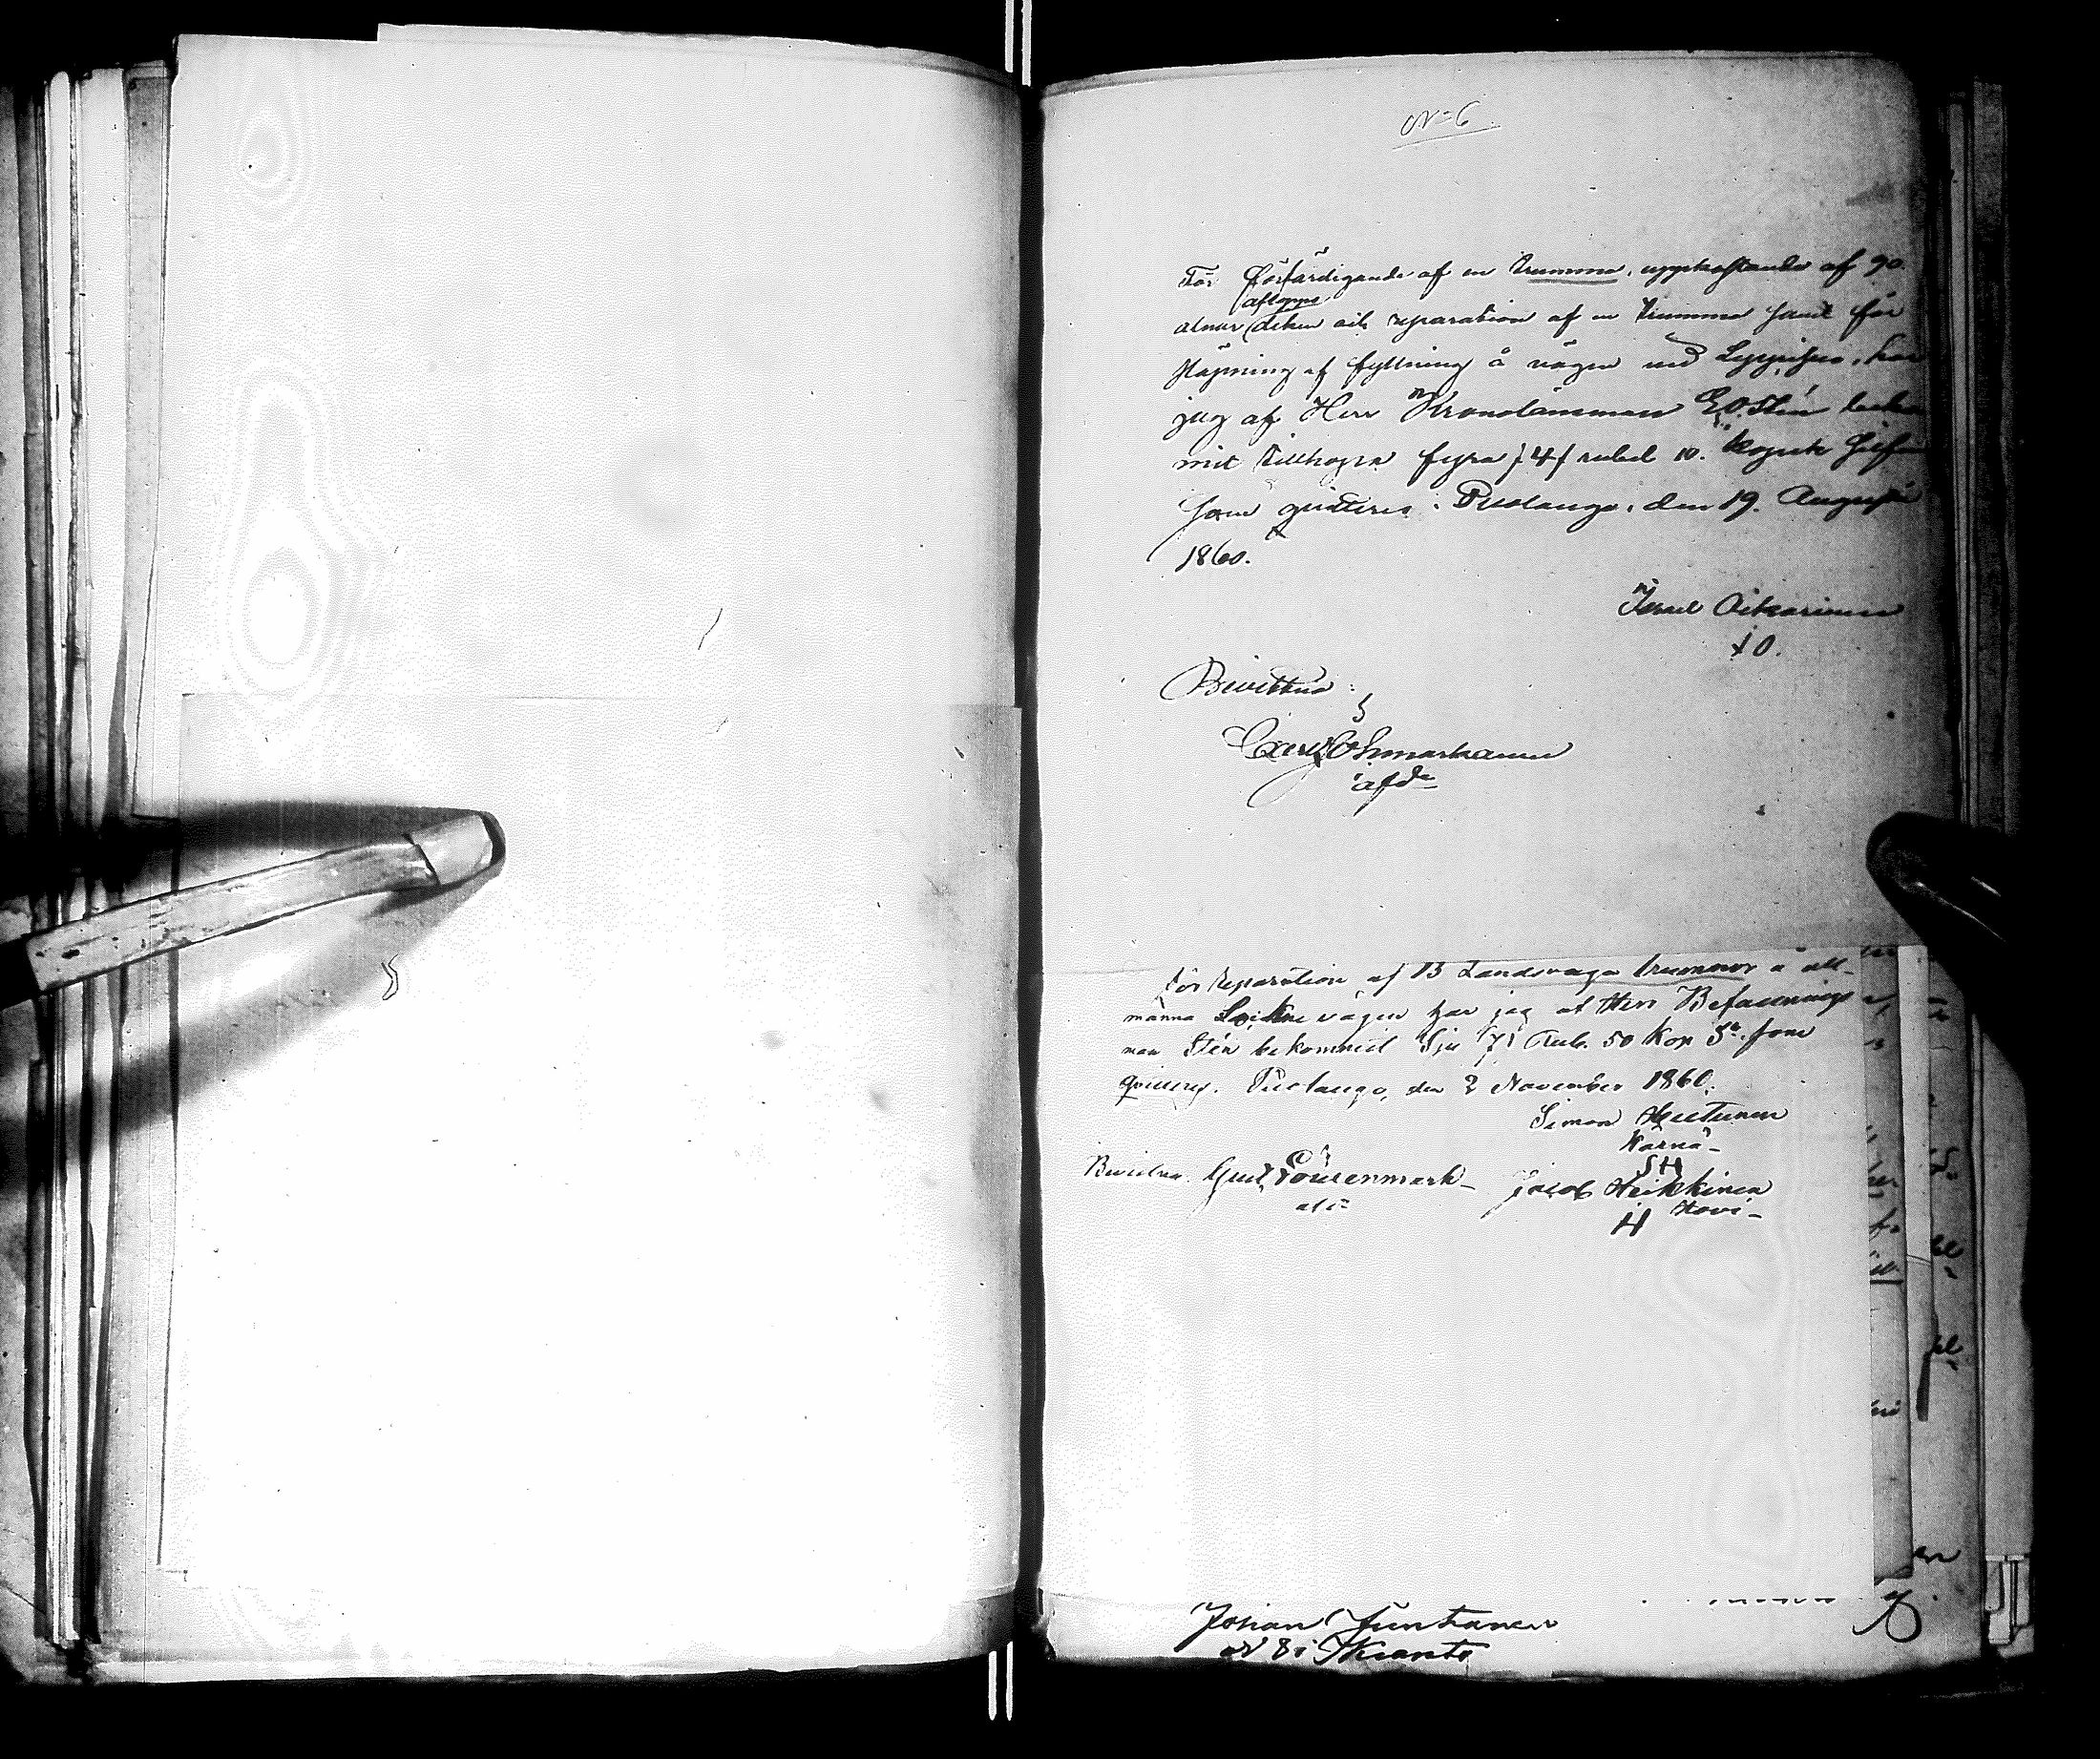 N=6.
För förfärdigande af en trumma, uppkastande af 90.
aftopps
alnar diken och reparation af en trumma samt för
släpning af fyllning å vägen vid har
jag af Herr Kronolänsman E.O. Stén bekom
mit tillhopa fyra /4/ rubel 10. kopek Silfver
som quitteras. Puolango, den 19. Augusti
1860.
Israel Oikarinen
IO.
Bevittna:
Carl Ohmarkanen
afd
För reparation af 13 Landsvägs trummor å all-
männa vägen har jag af Herr Befallnings
man Stén bekommit Sju /7/ Rub. 50 Kop Sr. som
quitteras. Puolango, den 2 November 1860.
Simon Huttunen
Kärnä-
SH
Bevittna. Gust
Jacob Heikkinen
Hovi-
H
Johan Juntunen
N 8 i Kianta